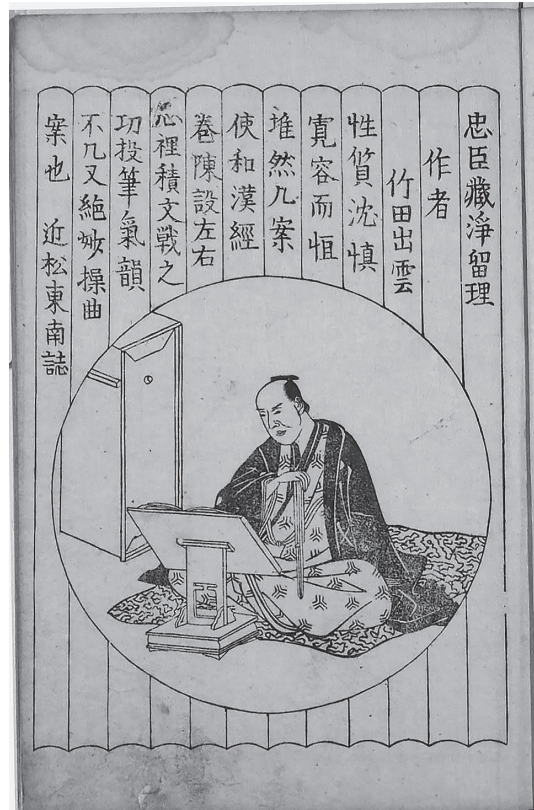 忠臣藏淨留理
作者
竹田出雲
性質沈慎
寛容而恒
堆然几案
使和漢經
巻陳設左右
心裡積文戦之
功投筆氣韻
不凡又絶妙操曲
案也 近松東南誌